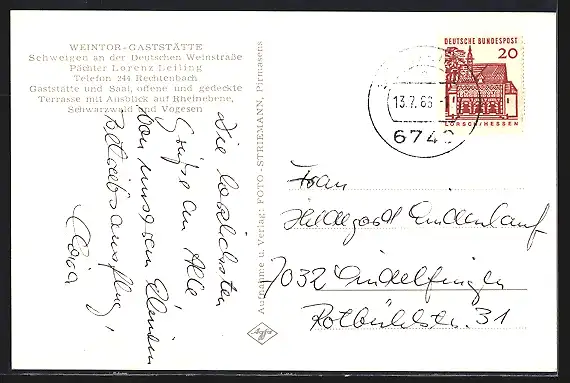 WEINTOR-GASTSTÄTTE
Schweigen an der Deutschen Weinstraße
Pächter Lorenz Leiling
Telefon 244 Rechtenbach
Gaststätte und Saal, offene und gedeckte
Terrasse mit Ausblick auf Rheinebene,
Schwarzwald und Vogesen
Die herzlichsten
Grüße an Alle
von unserem kleinen
Betriebsausflug!
Aufnahme u. Verlag: FOTO-STRIEMANN, Pirmasens
Agfa
DEUTSCHE BUNDESPOST
20
LORSCH/HESSEN
13.7.66
674
Frau
Hildegard Lindenlauf
7032 Sindelfingen
Rotbühlstr. 31